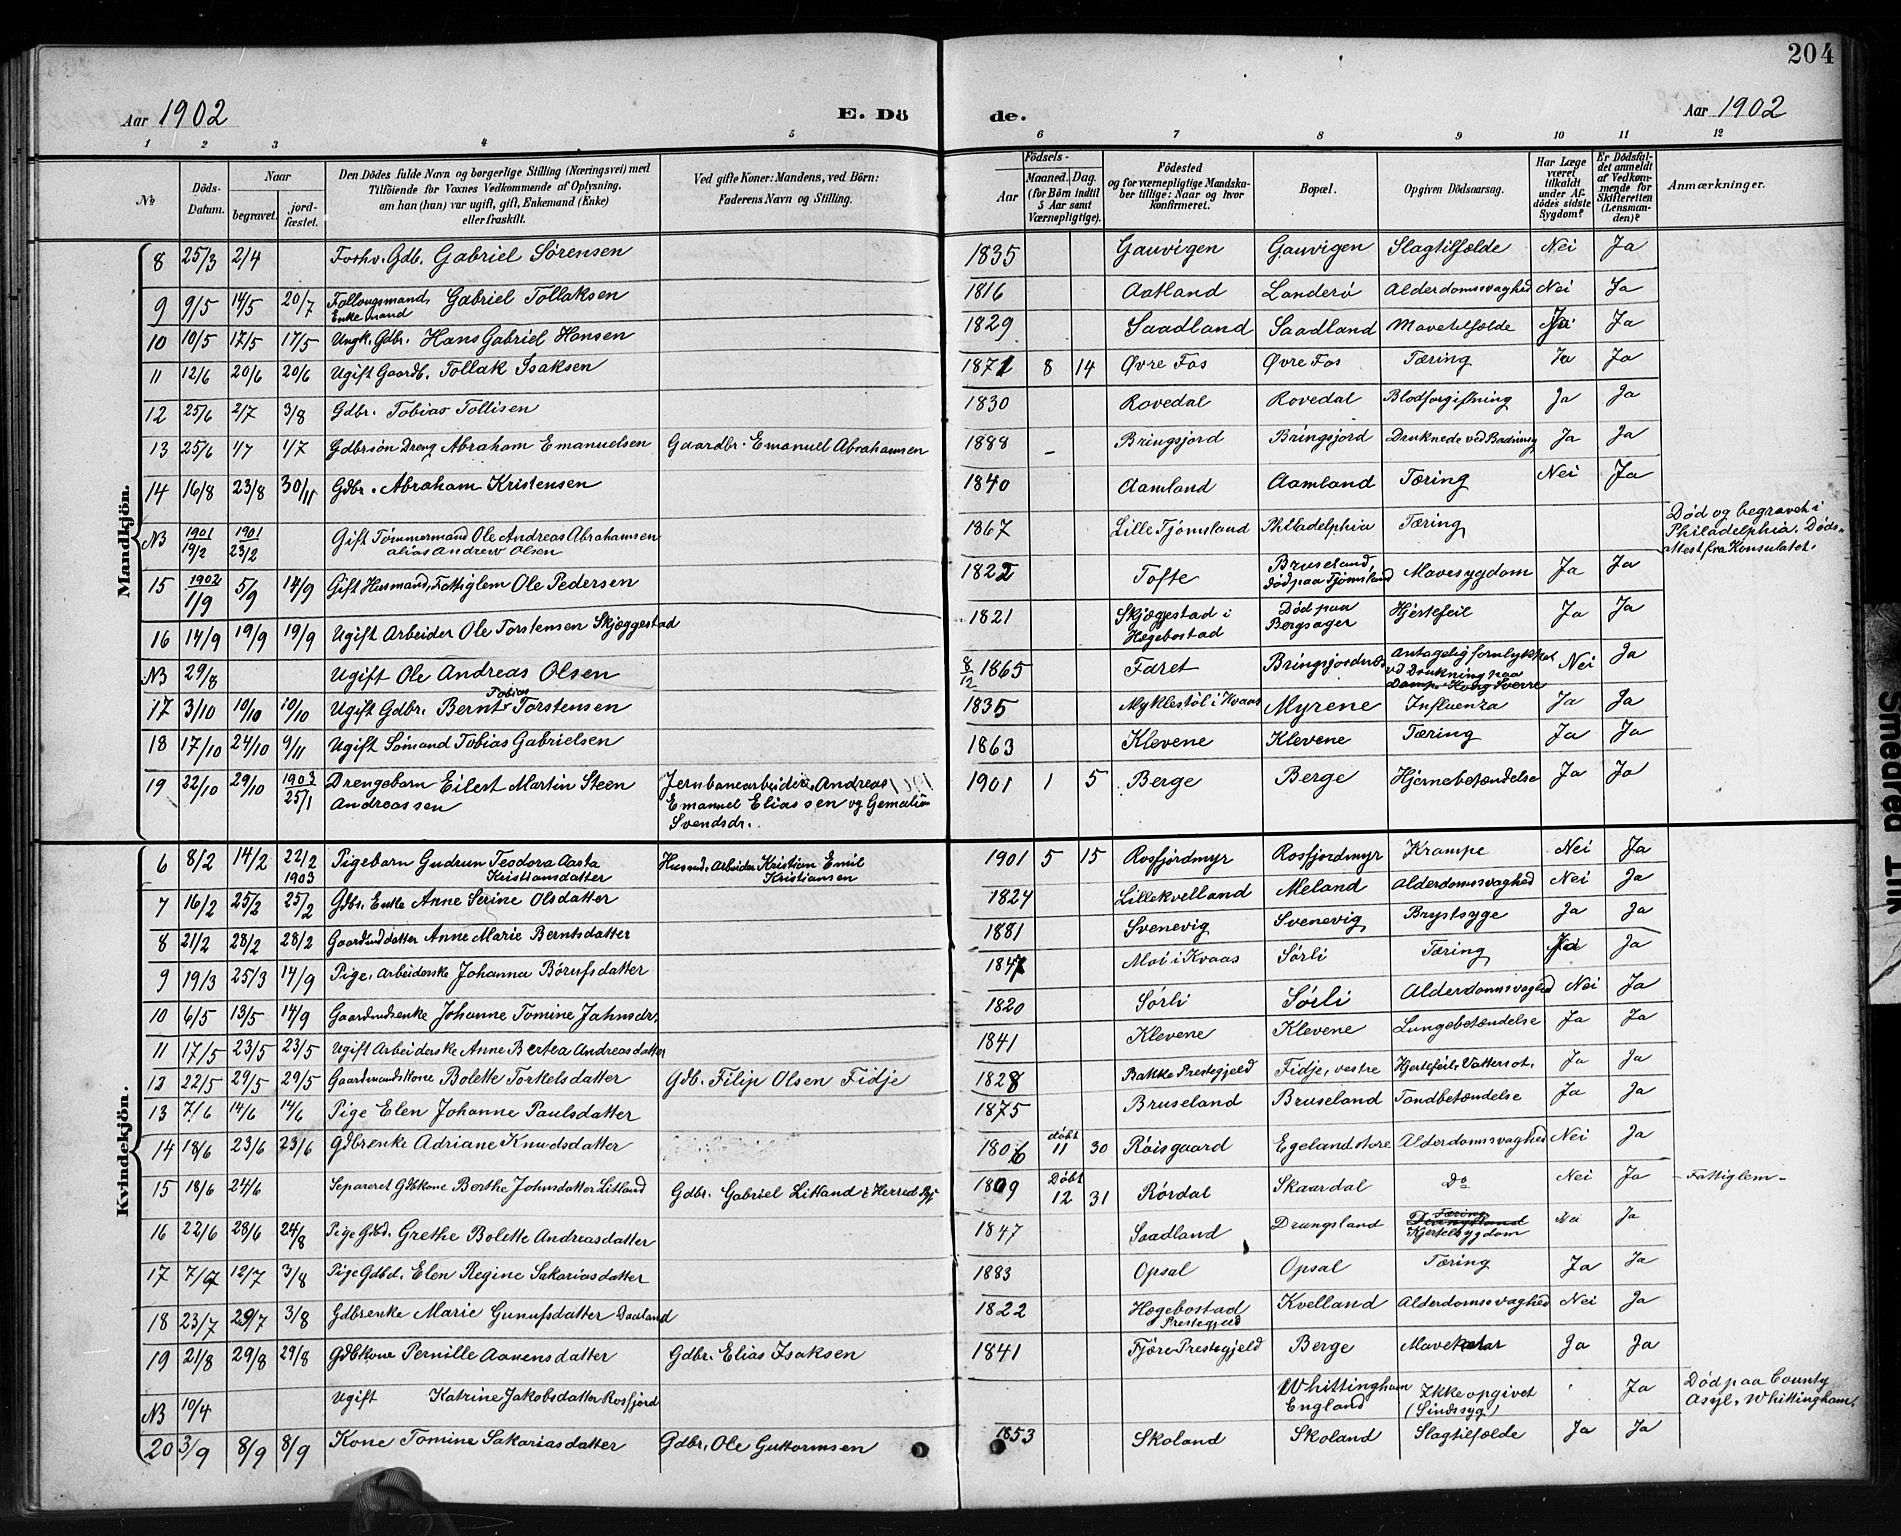 204
Aar 1902 E. Dö de. Aar 1902
1 2 3 4 5 6 7 8 9 10 11 12
No
Döds-Datum.
Naar
begravet. jord-fæstet.
Den Dödes fulde Navn og borgerlige Stilling (Næringsvei) med
Tilföiende for Voxnes Vedkommende af Oplysning,
om han (hun) var ugift, gift, Enkemand (Enke)
eller fraskilt.
Ved gifte Koner: Mandens, ved Börn:
Faderens Navn og Stilling.
Födsels-
Aar Maaned. Dag.
(for Börn indtil
5 Aar samt
Værnepligtige).
Födested
og for værnepligtige Mandska-
ber tillige: Naar og hvor
konfirmeret.
Bopæl.
Opgiven Dödsaarsag.
Har Læge
været
tilkaldt
under Af-
dödes sidste
Sygdom?
Er Dödsfal-
det anmeldt
af Vedkom-
mende for
Skifteretten
(Lensman-
den)?
Anmærkninger.
Mandkjön.
8 25/3 2/4 Forhv. Gdb. Gabriel Sørensen 1835 Gauvigen Gauvigen Slagtilfælde Nei Ja
9 9/5 14/5 20/7 Follougsmand, Enkemand Gabriel Tollaksen 1816 Aatland Landerö Alderdomssvaghed Nei Ja
10 10/5 17/5 17/5 Ungk. Gdbr. Hans Gabriel Hansen 1829 Saadland Saadland Mavetilfælde Ja Ja
11 12/6 20/6 20/6 Ugift Gaardb. Tollak Isaksen 1871 8 14 Øvre Fos Øvre Fos Tæring Ja Ja
12 25/6 2/7 3/8 Gdbr. Tobias Tollisen 1830 Rovedal Rovedal Blodforgiftning Ja Ja
13 25/6 1/7 1/7 Gdbrsön Dreng Abraham Emanuelsen Gaardbr. Emanuel Abrahamsen 1888 – Bringsjord Bringsjord Druknede ved Badning Ja Ja
14 16/8 23/8 30/11 Gdbr. Abraham Kristensen 1840 Aamland Aamland Tæring Nei Ja
NB 1901 19/2 1901 23/2 Gift Tømmermand Ole Andreas Abrahamsen
alias Andrew Olsen 1867 Lille Tjømsland Philadelphia Tæring Död og begravet i
Philadelphia. Døds-
attest fra Konsulatet.
15 1902 1/9 5/9 14/9 Gift Husmand, Fattiglem Ole Pedersen 1822 Tofte Bruseland,
död paa Tjømsland Mavesygdom Ja Ja
16 14/9 19/9 19/9 Ugift Arbeider Ole Torstensen Skjæggestad 1821 Skjæggestad i
Hægebostad Död paa
Bergsager Hjertefeil Ja Ja
NB 29/8 Ugift Ole Andreas Olsen 8/12 1865 Faret Bringsjordnes Antagelig forulykket
ved Drukning paa
Damp. Kong Sverre Nei Ja
17 3/10 10/10 10/10 Ugift Gdbr. Bernt Tobias Torstensen 1835 Myklestöl i Kvaas Myrene Influenza Ja Ja
18 17/10 24/10 9/11 Ugift Sömand Tobias Gabrielsen 1863 Klevene Klevene Tæring Ja Ja
19 22/10 29/10 1903 25/1 Drengebarn Eilert Martin Steen
Andreassen Jernbanearbeider Andreas
Emanuel Eliassen og Gemalie
Svendsdr. 1901 1 5 Berge Berge Hjernebetændelse Ja Ja
Kvindekjön.
6 8/2 14/2 22/2 1903 Pigebarn Gudrun Teodora Aasta
Kristiansdatter Husmd. Arbeider Kristian Emil
Kristiansen 1901 5 15 Rosfjordmyr Rosfjordmyr Krampe Nei Ja
7 16/2 25/2 25/2 Gdbr. Enke Anne Serine Olsdatter 1824 Lillekvelland Meland Alderdomssvaghed Nei Ja
8 21/2 28/2 28/2 Gaardmddatter Anne Marie Berntsdatter 1881 Svenevig Svenevig Brystsyge Ja Ja
9 19/3 25/3 14/9 Pige, Arbeiderske Johanna Børufsdatter 1847 Moi i Kvaas Sørli Tæring Ja Ja
10 6/5 13/5 14/9 Gaardmdsenke Johanne Tomine Jahnsdr. 1820 Sørli Sørli Alderdomssvaghed Nei Ja
11 17/5 23/5 23/5 Ugift Arbeiderske Anne Bertea Andreasdatter 1841 Klevene Klevene Lungebetændelse Ja Ja
12 22/5 29/5 29/5 Gaardmandskone Bolette Torkelsdatter Gdb. Filip Olsen Fidje 1828 Bakke Prestegjeld Fidje, vestre Hjertefeil, Vattersot. Ja Ja
13 7/6 14/6 14/6 Pige Elen Johanne Paulsdatter 1875 Bruseland Bruseland Tandbetændelse Ja Ja
14 18/6 23/6 23/6 Gdbrenke Adriane Knudsdatter 1806 døbt 11 30 Röisgaard Egeland store Alderdomssvaghed Nei Ja
15 18/6 24/6 Separeret Gdbkone Berthe Johnsdatter Litland Gdbr. Gabriel Litland i Herred Pgj 1809 Døbt 12 31 Rørdal Skaardal Do Nei Ja – Fattiglem –
16 22/6 28/6 24/8 Pige Gdbd. Grethe Bolette Andreasdatter 1847 Saadland Drangsland Tæring
Kjertelsygdom Nei Ja
17 7/7 12/7 3/8 Pige Gdbd. Elen Regine Sakariasdatter 1883 Opsal Opsal Tæring Ja Ja
18 23/7 29/7 3/8 Gdbrenke Marie Gunufsdatter Daaland 1822 Hægebostad
Prestegjeld Kvelland Alderdomssvaghed Nei Ja
19 21/8 29/8 29/8 Gdbkone Pernille Aanensdatter Gdbr. Elias Isaksen 1841 Fjære Prestegjeld Berge Mavekatar Ja Ja
NB 10/4 Ugift Katrine Jakobsdatter Rosfjord Whittingham
England Ikke opgivet
(Sindssyg) Ja Död paa County
Asyl, Whittingham.
20 3/9 8/9 8/9 Kone Tomine Sakariasdatter Gdbr. Ole Guttormsen 1853 Skoland Skoland Slagtilfælde Ja Ja